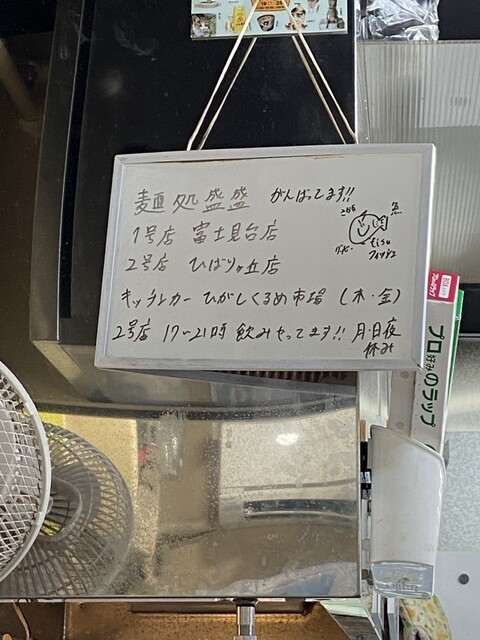 麺処 盛盛 がんばってます!!
1号店 富士見台店
2号店 ひばりヶ丘店
キッチンカー ひがしくるめ市場 (木・金)
2号店 17~21時 飲みやってます!! 月・日夜
休み
魚
フィッシュ
プロ好みのラップ